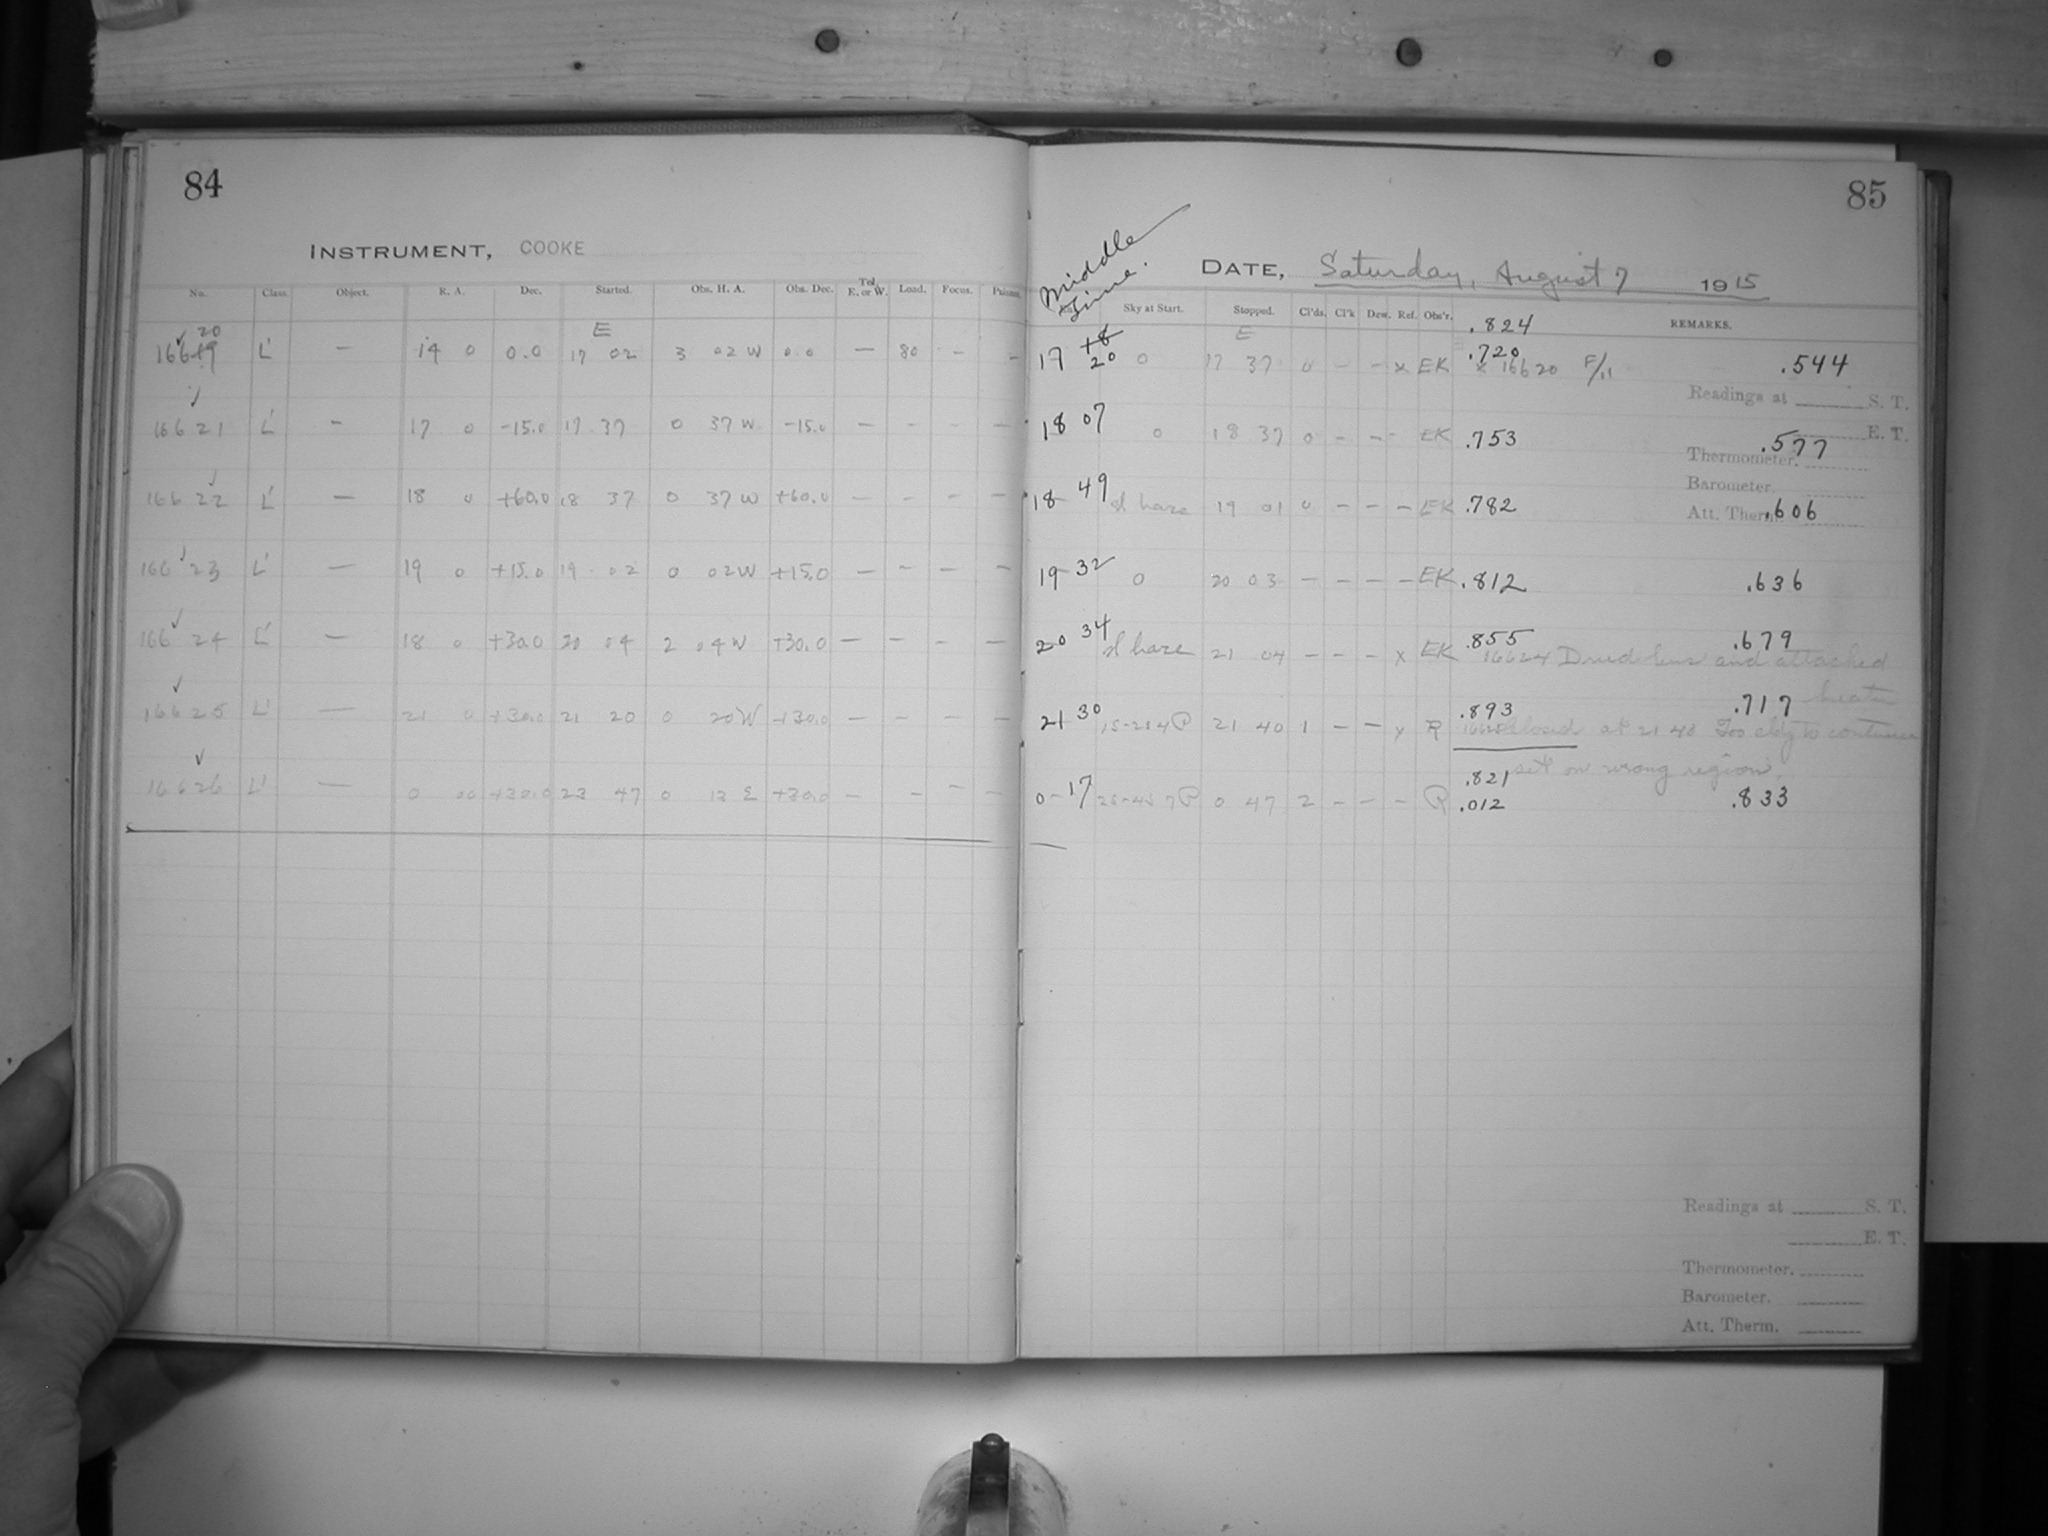 84
INSTRUMENT, COOKE
No. Class. Object. R. A. Dec. Started. Obs. H. A. Obs. Dec. Tel. E. or W. Load. Focus.
20 E
16619 L' — 14 0 0.0 17 02 3 02 W 0.0 — 80 - -
16621 L' — 17 0 -15.0 17 37 0 37 W -15.0 — - - -
16622 L' — 18 0 +60.0 18 37 0 37 W +60.0 — - - -
16623 L' — 19 0 +15.0 19 02 0 02 W +15.0 — - - -
16624 L' — 18 0 +30.0 20 04 2 04 W +30.0 — - - -
16625 L' — 21 0 +30.0 21 20 0 20 W +30.0 — - - -
16626 L' — 0 00 +30.0 23 47 0 13 E +30.0 — - - -
85
Middle
Time.
DATE, Saturday, August 7 1915
Sky at Start. Stopped. Cl'ds. Cl'k Dew. Ref. Obs'r. REMARKS.
.824
E
17 18 20 0 17 37 0 - - x EK .720 .544
x 16620 F/11
Readings at S. T.
E. T.
18 07 0 18 37 0 - - - EK .753 .577
Thermometer.
Barometer.
18 49 sl haze 19 01 0 - - - EK .782 .606
Att. Therm.
19 32 0 20 03 - - - - EK .812 .636
20 34 sl haze 21 04 - - - x EK .855 .679
16624 Dried lens and attached
heater
21 30 21 40 1 - - x R .893 .717
16625 Closed at 21 40 Too cldy to continue
set on wrong region.
.821
0-17 0 47 2 - - - R .012 .833
Readings at S. T.
E. T.
Thermometer.
Barometer.
Att. Therm.